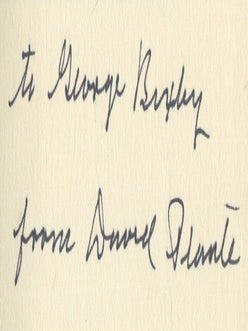 to George Bixby
from David Plante